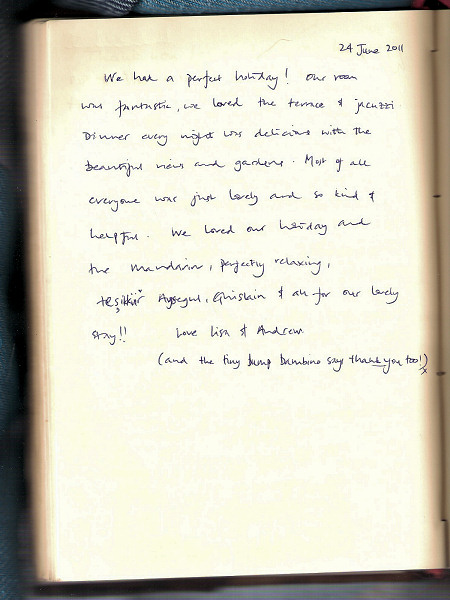 24 June 2011
We had a perfect holiday! Our room
was fantastic, we loved the terrace & jacuzzi
Dinner every night was delicious with the
beautiful views and gardens. Most of all
everyone was just lovely and so kind &
helpful. We loved our holiday and
the Mandarin, perfectly relaxing,
teşikür Aysegul, Ghislain & all for our lovely
stay!! Love Lisa & Andrew
(and the tiny bump bambino says thank you too!)
x